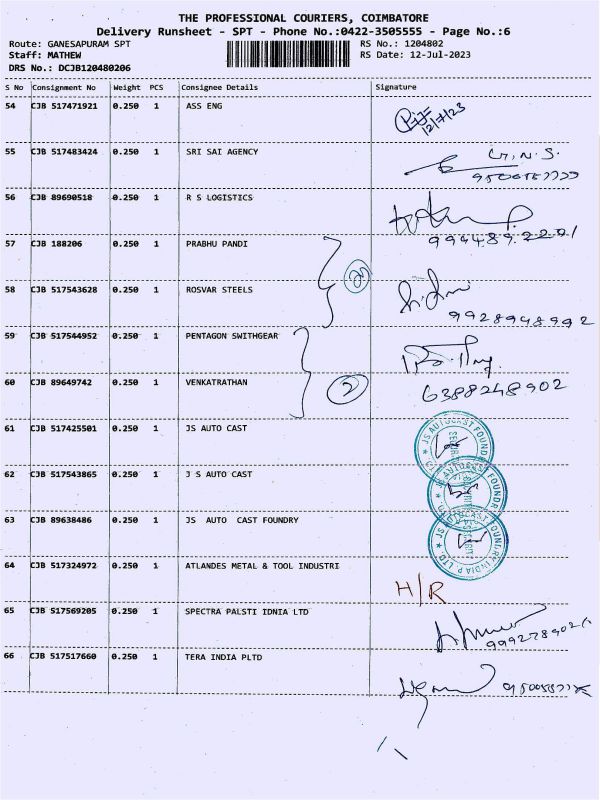 THE PROFESSIONAL COURIERS, COIMBATORE
Delivery Runsheet - SPT - Phone No.:0422-3505555 - Page No.:6
Route: GANESAPURAM SPT RS No.: 1204802
Staff: MATHEW RS Date: 12-Jul-2023
DRS No.: DCJB120480206
S No Consignment No Weight PCS Consignee Details Signature
54 CJB 517471921 0.250 1 ASS ENG
12/7/23
55 CJB 517483424 0.250 1 SRI SAI AGENCY
G.N.S.
56 CJB 89690518 0.250 1 R S LOGISTICS
57 CJB 188206 0.250 1 PRABHU PANDI
2
58 CJB 517543628 0.250 1 ROSVAR STEELS
9928948992
59 CJB 517544952 0.250 1 PENTAGON SWITHGEAR
60 CJB 89649742 0.250 1 VENKATRATHAN
2
6388248902
61 CJB 517425501 0.250 1 JS AUTO CAST
62 CJB 517543865 0.250 1 J S AUTO CAST
63 CJB 89638486 0.250 1 JS AUTO CAST FOUNDRY
JS AUTOCAST FOUNDRY INDIA P LTD. SECURITY
64 CJB 517324972 0.250 1 ATLANDES METAL & TOOL INDUSTRI
H/R
65 CJB 517569205 0.250 1 SPECTRA PALSTI IDNIA LTD
66 CJB 517517660 0.250 1 TERA INDIA PLTD